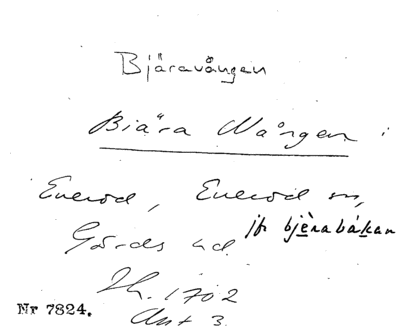 Bjäravången
Biära Wången i
Everöd, Everöd sn,
Gärds hd. jfr bjèrabákan
Jb. 1702
Ant 3.
Nr 7824.